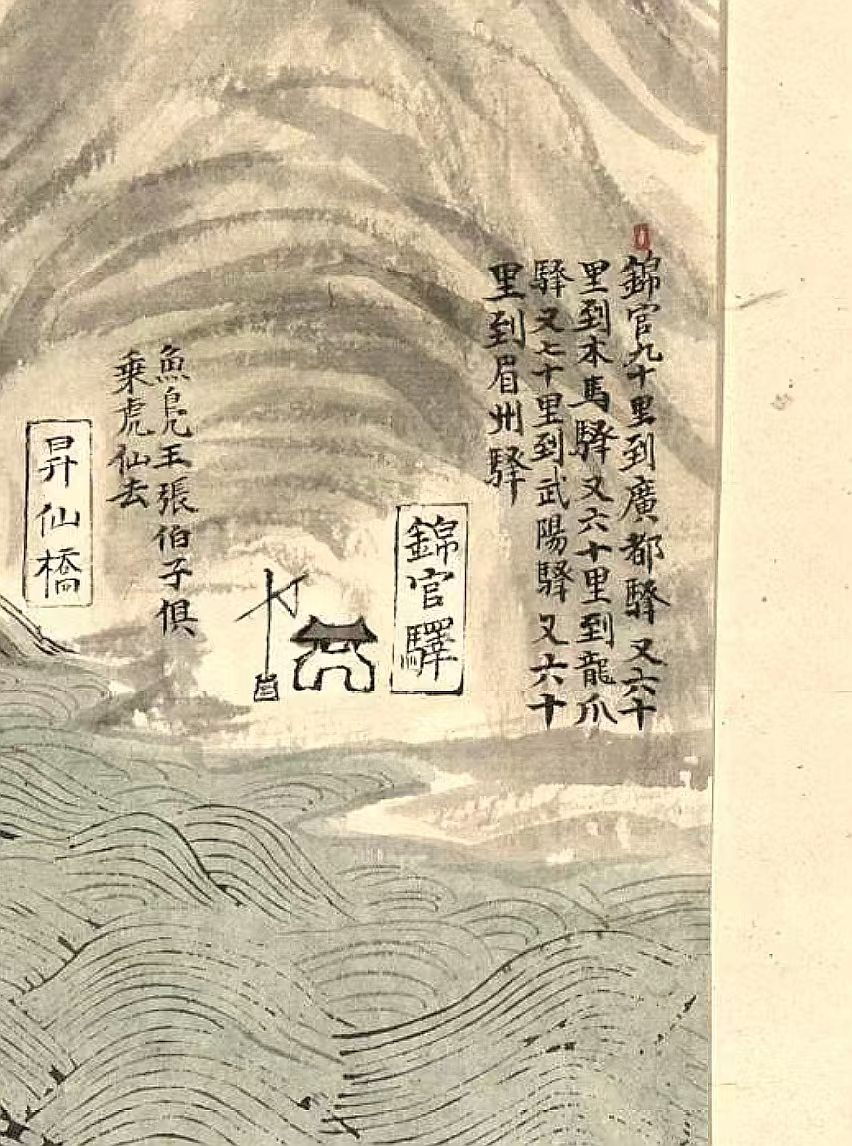 錦官九十里到廣都驛又六十
里到木馬驛又六十里到龍爪
驛又七十里到武陽驛又六十
里到眉州驛
錦官驛
魚鳧王張伯子俱
乘虎仙去
昇仙橋